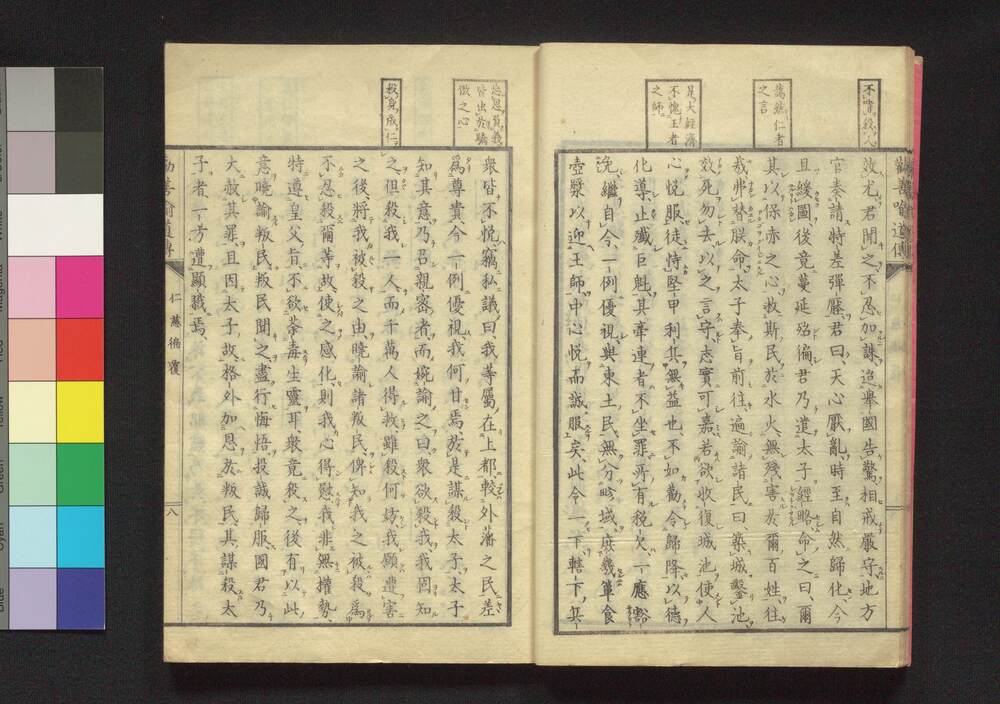 不嗜殺人
藹然仁者
之言
是大經濟
不愧王者
之師
勸善喻道傳
效尤君聞之不忍加誅迨舉國告警相戒嚴守地方
官奏請特差彈壓君曰天心厭亂時至自然歸化今
且緩圖後竟蔓延殆徧君乃遣太子經略命之曰爾
其以保赤之心救斯民於水火無殘害於爾百姓往
哉弗替朕命太子奉旨前往遍諭諸民曰築城鑿池
效死勿去以之言守志實可嘉若欲收復城池使人
心悅服徒恃堅甲利其無益也不如勸令歸降以德
化導止殲巨魁其牽連者不坐罪所有稅欠一應豁
免繼自今一例優視與東土民無分畛域庶幾簞食
壺漿以迎王師中心悅而誠服矣此令一下轄下兵
忘恩負義
皆出於驕
傲之心
殺身成仁
眾皆不悅竊私議曰我等屬在上都較外藩之民差
爲尊貴今一例優視我何甘焉於是謀殺太子太子
知其意乃召親審者而婉諭之曰眾欲殺我我固知
之但殺我一人而千萬人得救雖殺何妨我願遭害
之後將我被殺之由曉諭諸叛民俾知我之被殺爲
不忍殺爾等故使之感化則我心得慰我非無權勢
特遵皇父旨不欲荼毒生靈耳眾竟殺之後有以此
意曉諭叛民叛民聞之盡行悔悟投誠歸服國君乃
大赦其罪且因太子故格外加恩於叛民其謀殺太
子者一一方遭顯戮焉
勸善喻道傳
仁慈
八